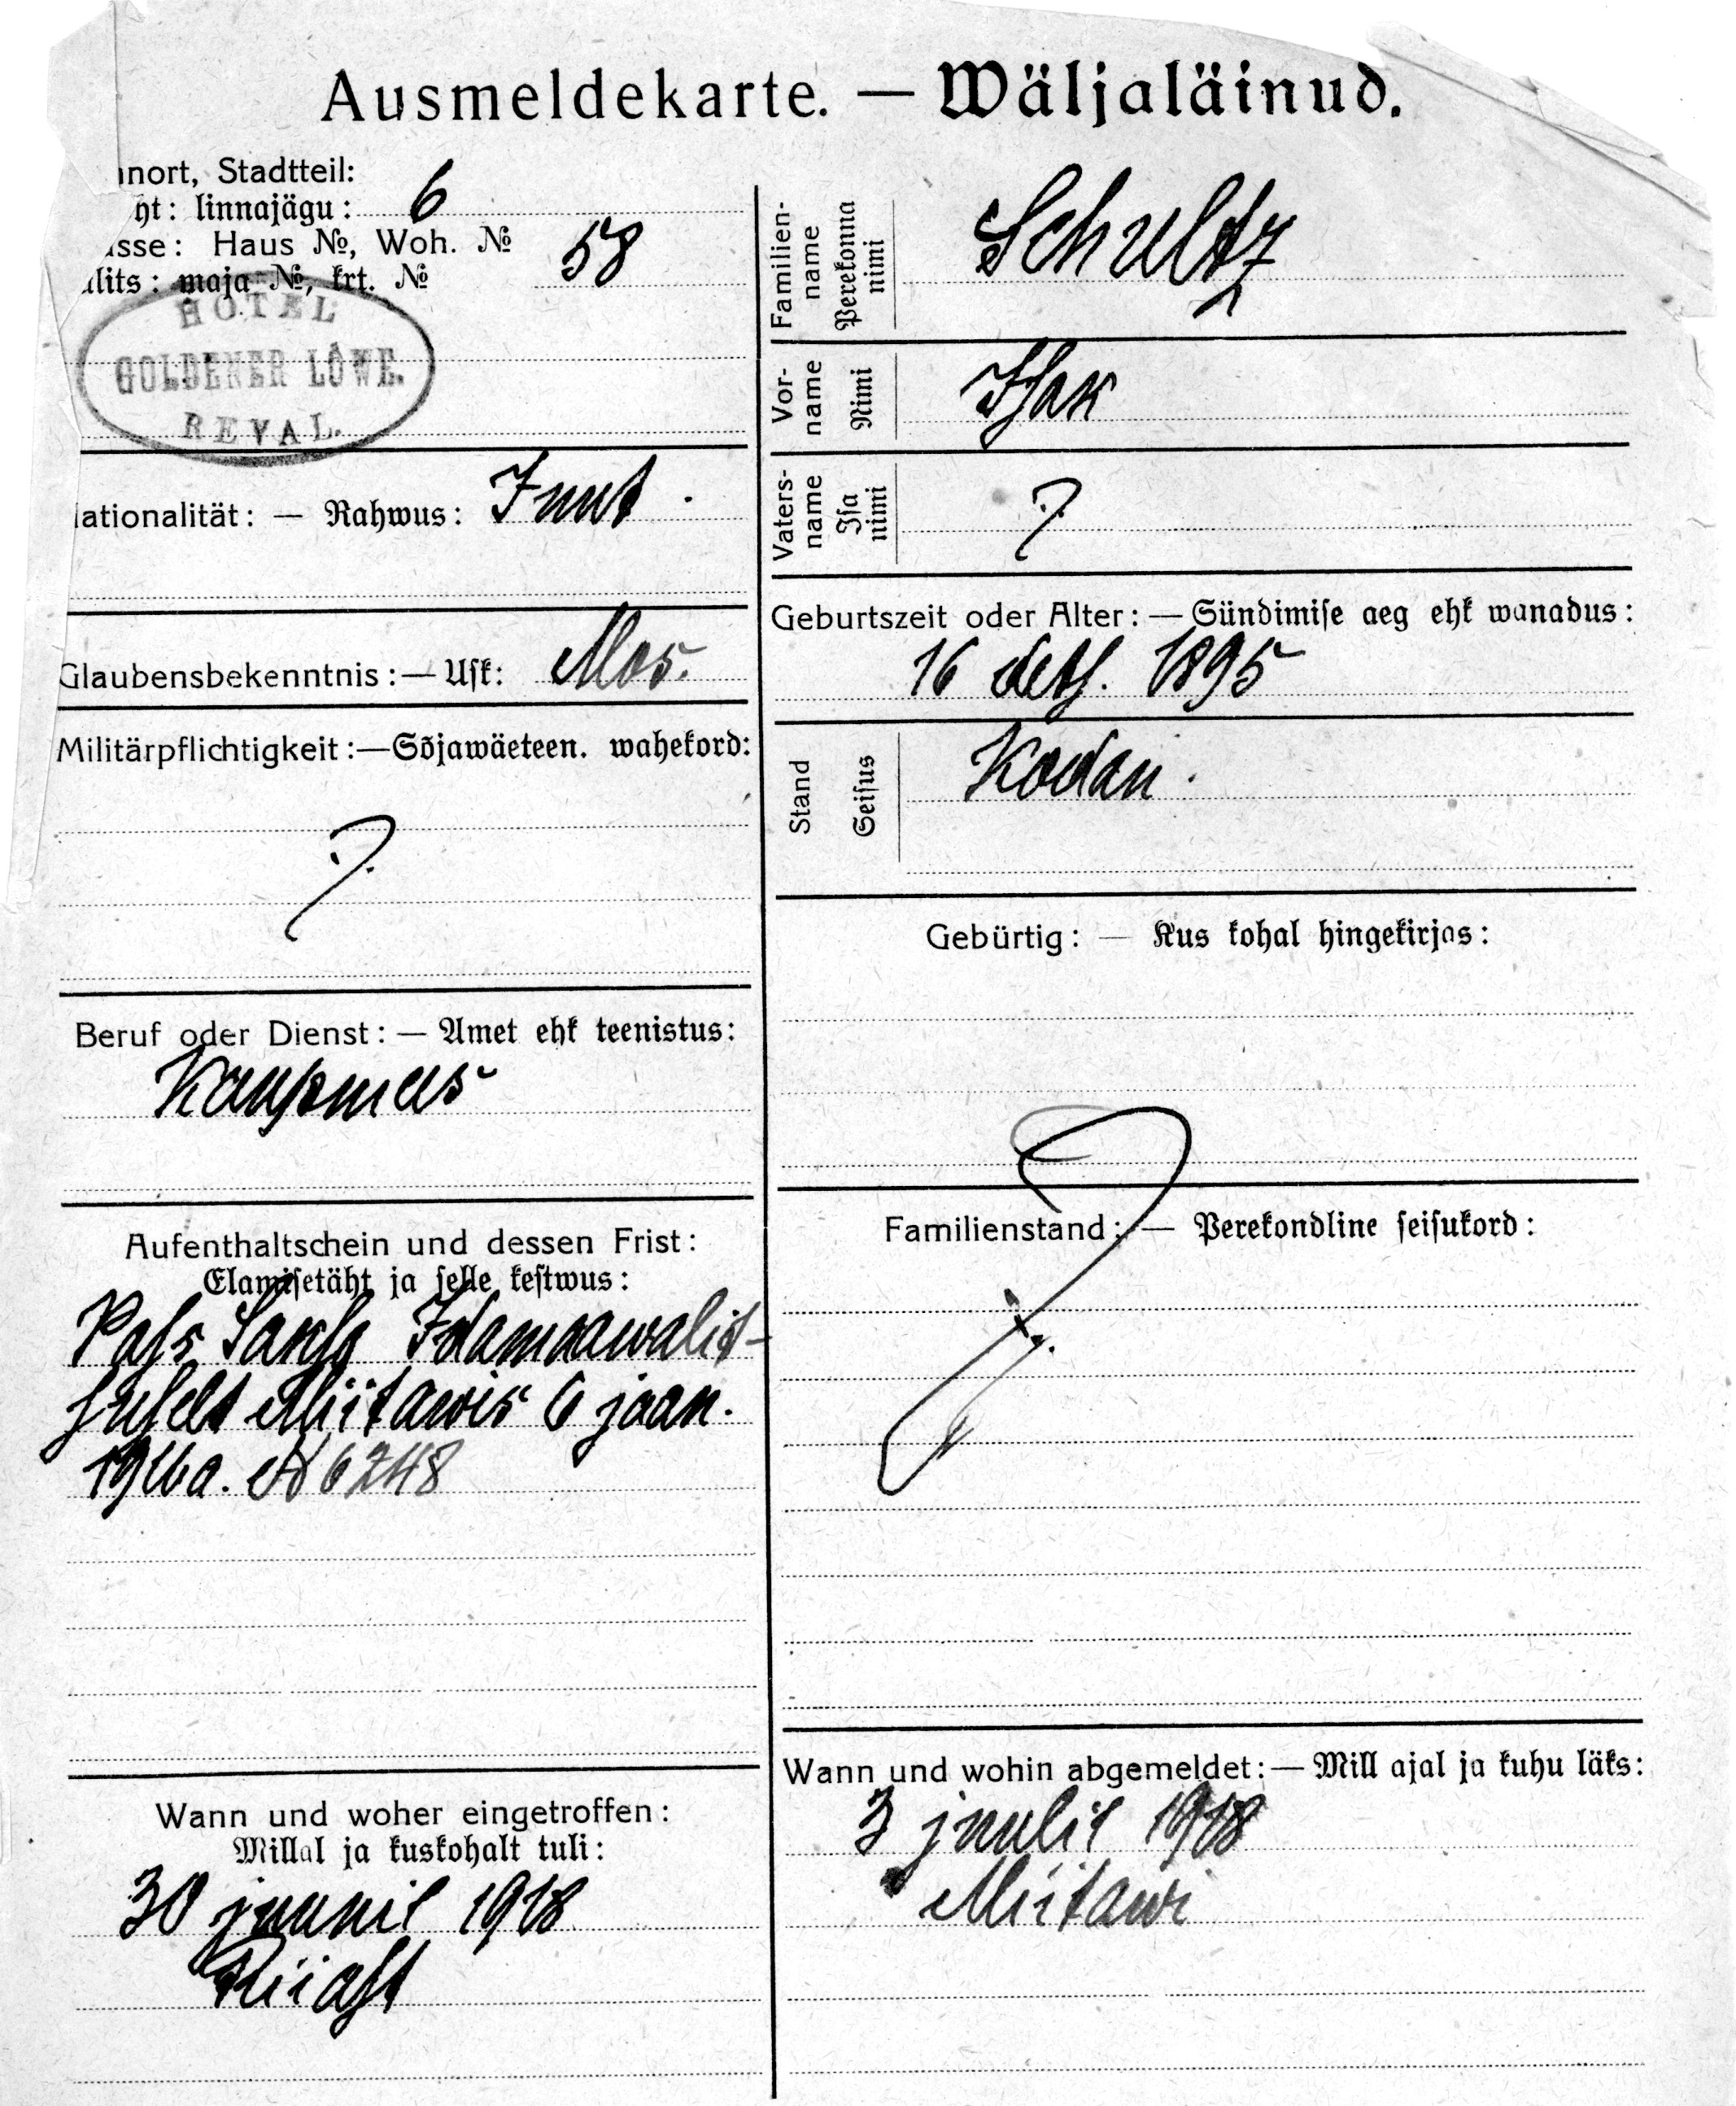 Ausmeldekarte. — Wäljaläinud.
nort, Stadtteil:
ht: linnajägu: 6
sse: Haus №, Woh. №
lits: maja №, krt. № 58
HOTEL
GOLDENER LÖWE.
REVAL.
Nationalität: — Rahwus: Juut.
Glaubensbekenntnis: — Usk: Mos.
Militärpflichtigkeit: — Sõjawäeteen. wahekord:
?
Beruf oder Dienst: — Amet ehk teenistus:
Kaupmees
Aufenthaltschein und dessen Frist:
Elamisetäht ja selle kestwus:
Pass Saksa Idamaawalit-
suselt Miitawis 6 jaan.
1916a. № 6248
Wann und woher eingetroffen:
Millal ja kuskohalt tuli:
30 juunil 1918
Riiast
Familien-
name
Perekonna
nimi
Schultz
Vor-
name
Nimi
Isak
Vaters-
name
Isa
nimi
?
Geburtszeit oder Alter: — Sündimise aeg ehk wanadus:
16 dets. 1895
Stand
Seisus
Kodan.
Gebürtig: — Kus kohal hingekirjas:
Familienstand: — Perekondline seisukord:
?
Wann und wohin abgemeldet: — Mill ajal ja kuhu läks:
3 juulil 1918
Miitawi